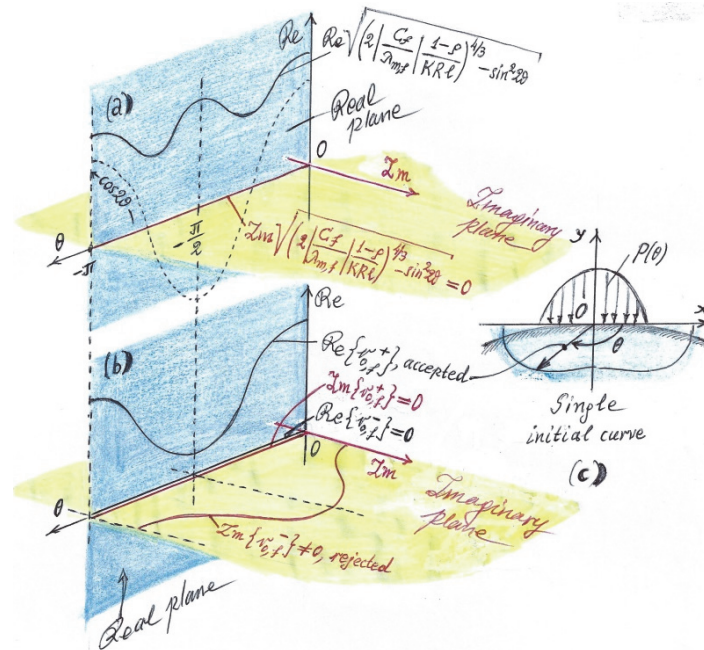 Re
Re√((2|C_f/λ_{m,f}|(1-ρ)/KRl|)^{4/3} - sin²2θ)
(a)
Real
plane
O
Im
cos2θ
Imaginary
plane
θ
-π
-π/2
Im√((2|C_f/λ_{m,f}|(1-ρ)/KRl|)^{4/3} - sin²2θ) = 0
y
P(θ)
O
x
θ
Single
initial curve
(c)
Re
(b)
Re{r⁺_{0,f}}, accepted
Im{r⁺_{0,f}}=0
Re{r⁻_{0,f}}=0
O
Im
θ
Imaginary
plane
Im{r⁻_{0,f}}≠0, rejected
Real plane